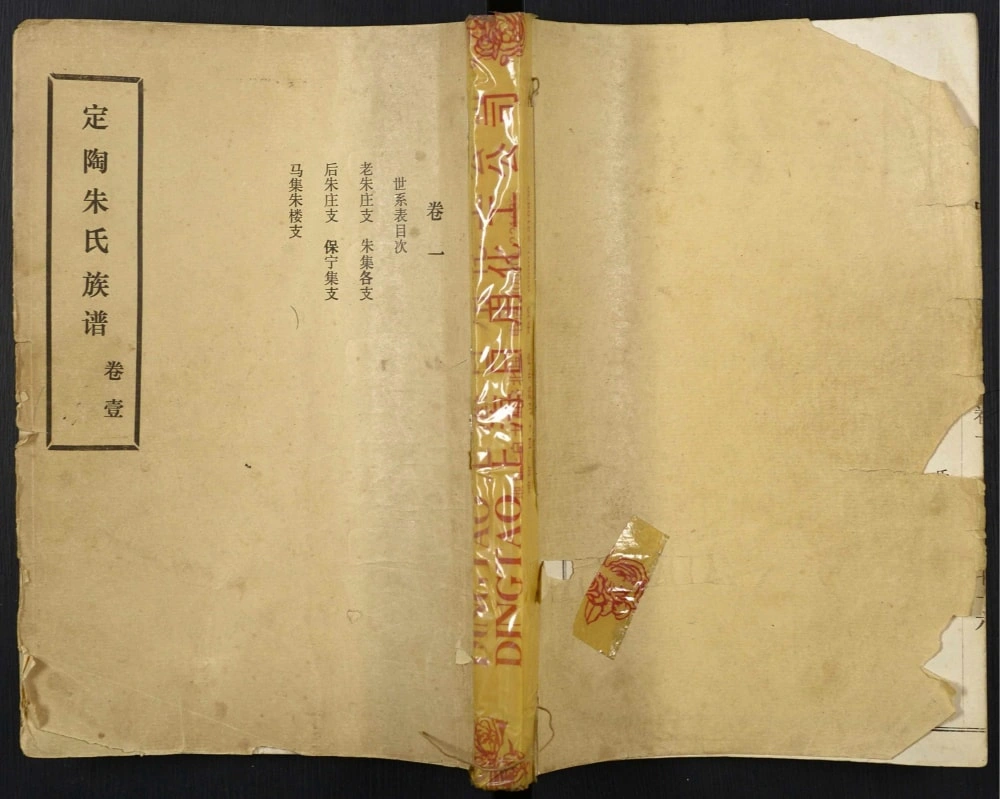 定陶朱氏族谱
卷壹
卷一
世系表目次
老朱庄支 朱集各支
后朱庄支 保宁集支
马集朱楼支
DINGTAO 上海日用化工公司